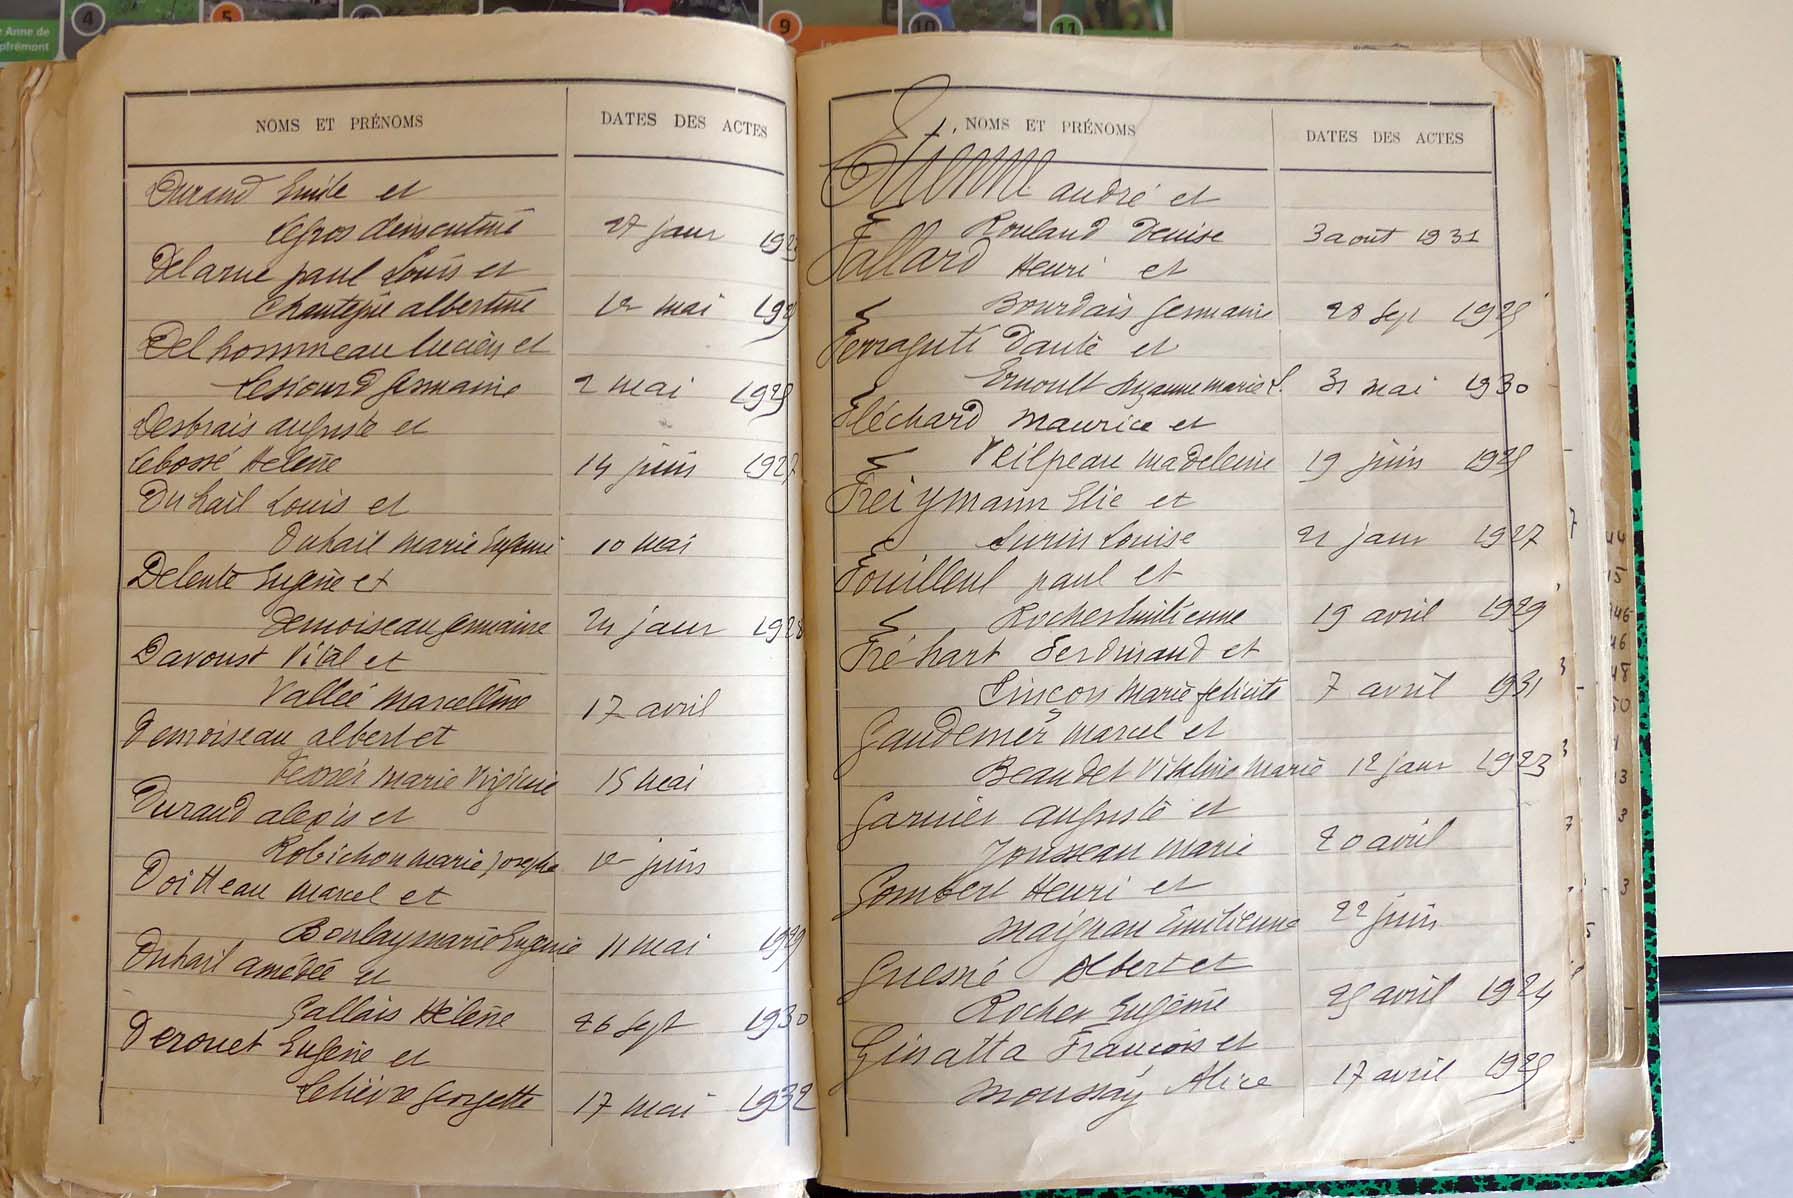 e Anne de
pfrémont
4
5
9
10
11
NOMS ET PRÉNOMS DATES DES ACTES
Durand Emile et
Legros Clémentine 27 janr 192
Delarue paul Louis et
Chantepie albertine 12 mai 192
Delhommeau Lucien et
Lesiourd Germaine 2 mai 1925
Desbrais auguste et
Lebossé Helène 14 juin 1927
Duhail Louis et
Duhail Marie Eugénie 10 mai
Delente Eugène et
Demoiseau Germaine 21 janr 1928
Davoust Vital et
Vallée Marcelline 17 avril
Demoiseau albert et
Marie Virginie 15 mai
Durand alexis et
Robichon marie josephe 12 juin
Doitteau marcel et
Boulay marie Eugenie 11 mai 1929
Duhail amédée et
Gallais Hélène 26 sept 1930
Derouet Eugène et
Lelièvre Georgette 17 mai 1932
NOMS ET PRÉNOMS DATES DES ACTES
Etienne andré et
Rouland Denise 3 aout 1931
Fallard Henri et
Bourdais Germaine 28 sep 1925
Ferraguti Dante et
Ernoult Suzanne marie L. 31 mai 1930
Fléchard Maurice et
Veilpeau Madeleine 19 juin 1925
Freiymann Elie et
Surin Louise 21 janr 1927
Fouilleul paul et
Rocher Emilienne 19 avril 1929
Fréhart Ferdinand et
Pinçon Marie felicité 7 avril 1931
Gaudemer Marcel et
Beaudet Vitaline Marie 12 janr 1923
Garnier auguste et
Jousseau Marie 20 avril
Gombert Henri et
Maignan Emilienne 22 juin
Guesné Albert et
Rocher Eugénie 25 avril 1924
Ginatta François et
Moussay Alice 17 avril 1925